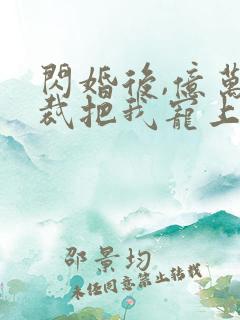 閃婚後,億萬
裁把我寵上
邵景均
未经同意禁止转载